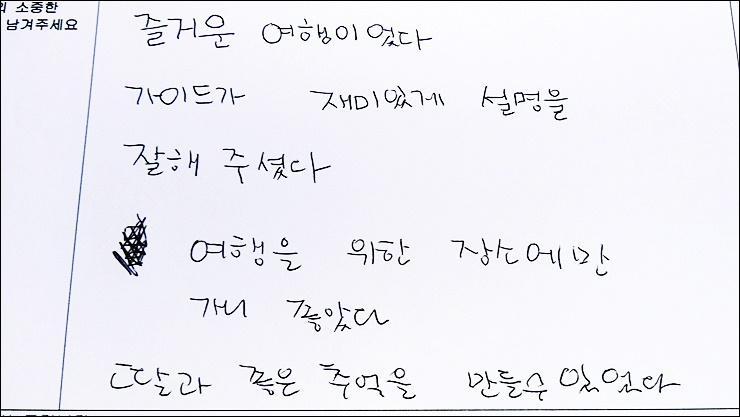 소중한
남겨주세요
즐거운 여행이었다
가이드가 재미있게 설명을
잘해 주셨다
여행을 위한 장소에만
가니 좋았다
딸과 좋은 추억을 만들수 있었다